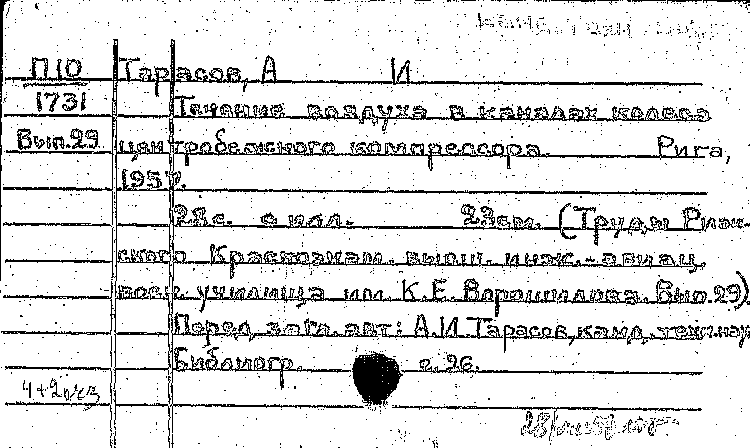 П10 Тарасов, А И
1731 Течение воздуха в каналах колеса
Вып.29 центробежного компрессора. Рига,
1957.
28с. с илл. 23см. (Труды Риж-
ского Краснознам. высш. инж.-авиац.
воен. училища им. К.Е. Ворошилова. Вып.29).
Перед загл. авт: А.И. Тарасов, канд. техн. наук
Библиогр. с. 26.